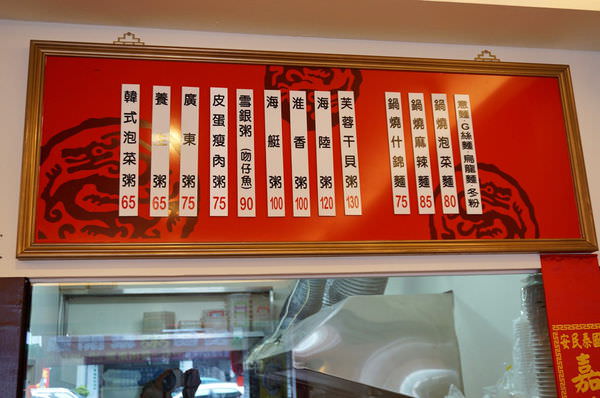 韓式泡菜粥 65
養生粥 65
廣東粥 75
皮蛋瘦肉粥 75
雪銀粥(吻仔魚) 90
海艇粥 100
淮香粥 100
海陸粥 120
芙蓉干貝粥 130
鍋燒什錦麵 75
鍋燒麻辣麵 85
鍋燒泡菜麵 80
意麵·G絲麵 烏龍麵·冬粉
國泰民安
嘉